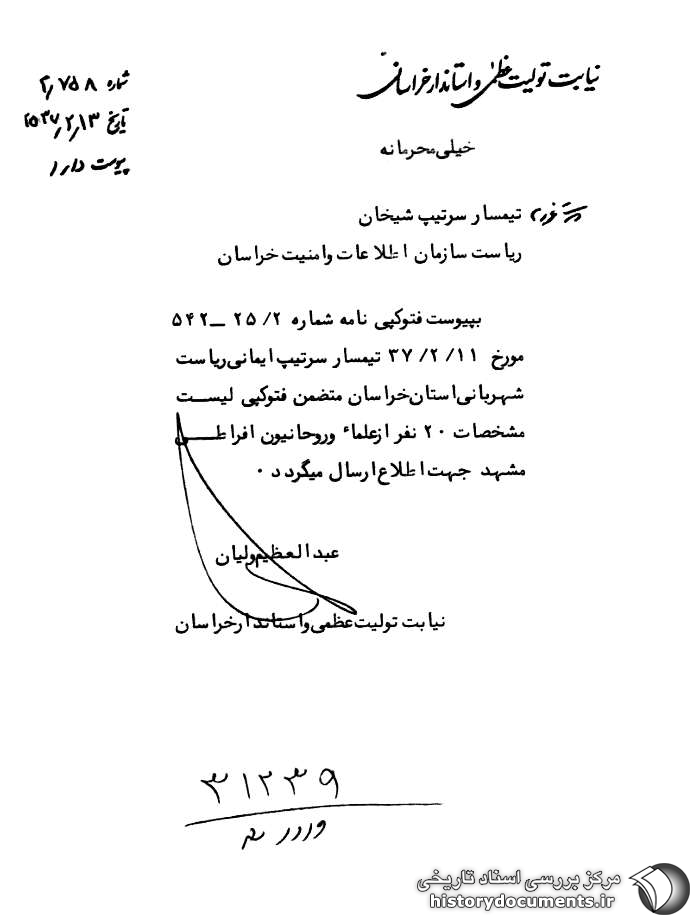 نیابت تولیت عظمی و استاندار خراسان
شماره ۲٫۷۵۸
تاریخ ۲۵۳۷٫۲٫۱۳
پیوست دارد
خیلی محرمانه
تیمسار سرتیپ شیخان
ریاست سازمان اطلاعات وامنیت خراسان
بپیوست فتوکپی نامه شماره ۲۵/۲ – ۵۴۲
مورخ ۳۷/۲/۱۱ تیمسار سرتیپ ایمانی ریاست
شهربانی استان خراسان متضمن فتوکپی لیست
مشخصات ۲۰ نفر از علماء وروحانیون افراطی
مشهد جهت اطلاع ارسال میگردد ۰
عبدالعظیم ولیان
نیابت تولیت عظمی و استاندار خراسان
۳۱۲۳۹
مرکز بررسی اسناد تاریخی
historydocuments.ir